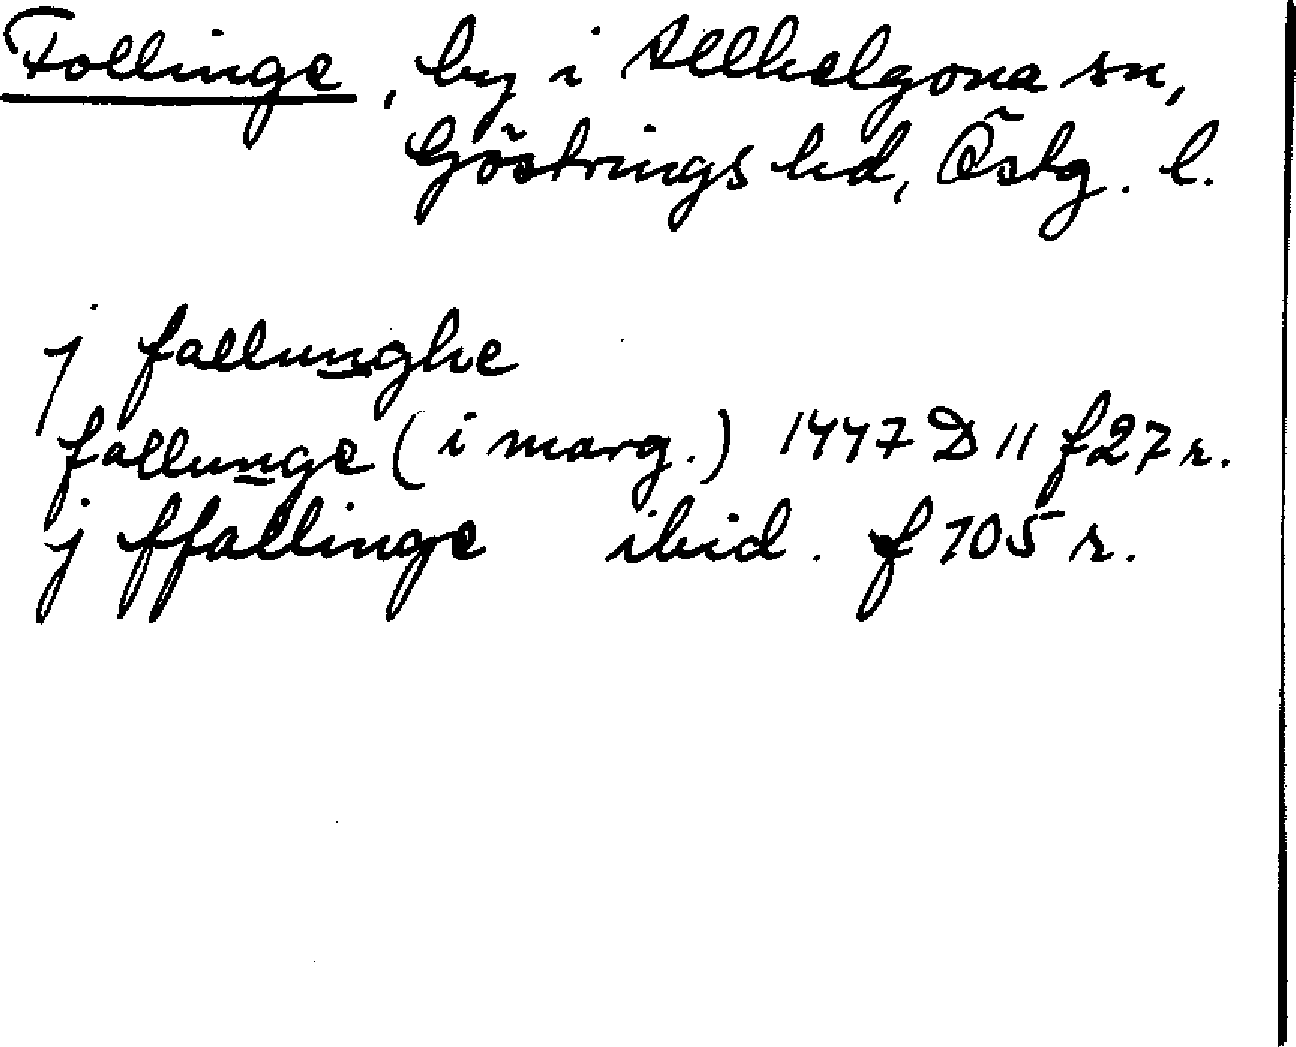 Follinge, by i Allhelgona sn,
Göstrings hd, Östg. l.
j fallunghe
fallunge (i marg.) 1447 D 11 f 27 r.
j ffallinge ibid. f 105 r.